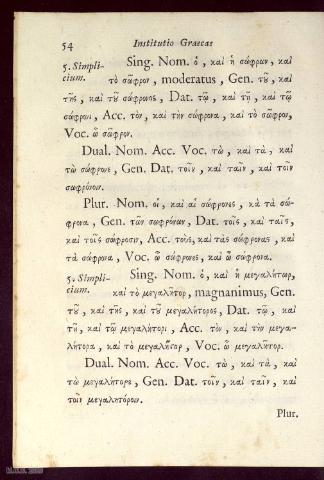 54 Institutio Graecae
5. Simpli- Sing. Nom. ὁ, καὶ ἡ σώφρων, καὶ
cium. τὸ σῶφρον, moderatus, Gen. τοῦ, καὶ
τῆς, καὶ τοῦ σώφρονος, Dat. τῷ, καὶ τῇ, καὶ τῷ
σώφρονι, Acc. τὸν, καὶ τὴν σώφρονα, καὶ τὸ σῶφρον,
Voc. ὦ σῶφρον.
Dual. Nom. Acc. Voc. τὼ, καὶ τὰ, καὶ
τὼ σώφρονε, Gen. Dat. τοῖν, καὶ ταῖν, καὶ τοῖν
σωφρόνοιν.
Plur. Nom. οἱ, καὶ αἱ σώφρονες, καὶ τὰ σώ-
φρονα, Gen. τῶν σωφρόνων, Dat. τοῖς, καὶ ταῖς,
καὶ τοῖς σώφροσιν, Acc. τοὺς, καὶ τὰς σώφρονας, καὶ
τὰ σώφρονα, Voc. ὦ σώφρονες, καὶ ὦ σώφρονα.
5. Simpli- Sing. Nom. ὁ, καὶ ἡ μεγαλήτωρ,
cium. καὶ τὸ μεγαλῆτορ, magnanimus, Gen.
τοῦ, καὶ τῆς, καὶ τοῦ μεγαλήτορος, Dat. τῷ, καὶ
τῇ, καὶ τῷ μεγαλήτορι, Acc. τὸν, καὶ τὴν μεγα-
λήτορα, καὶ τὸ μεγαλῆτορ, Voc. ὦ μεγαλῆτορ.
Dual. Nom. Acc. Voc. τὼ, καὶ τὰ, καὶ
τὼ μεγαλήτορε, Gen. Dat. τοῖν, καὶ ταῖν, καὶ
τοῖν μεγαλητόροιν.
Plur.